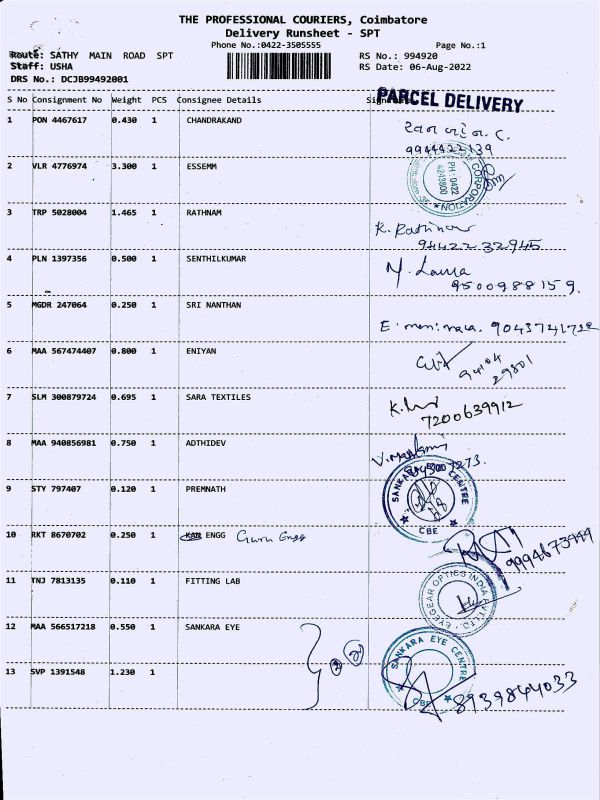 THE PROFESSIONAL COURIERS, Coimbatore
Delivery Runsheet - SPT
Phone No.:0422-3505555
Page No.:1
Route: SATHY MAIN ROAD SPT
RS No.: 994920
Staff: USHA
RS Date: 06-Aug-2022
DRS No.: DCJB99492001
PARCEL DELIVERY
S No Consignment No Weight PCS Consignee Details
1 PON 4467617 0.430 1 CHANDRAKAND
9944422139
2 VLR 4776974 3.300 1 ESSEMM
CORPORATION
PH: 0422
4243800
3 TRP 5028004 1.465 1 RATHNAM
K. Rathinam
94422 32945
4 PLN 1397356 0.500 1 SENTHILKUMAR
9500988159.
5 MGDR 247064 0.250 1 SRI NANTHAN
9043741722
6 MAA 567474407 0.800 1 ENIYAN
94104
29801
7 SLM 300879724 0.695 1 SARA TEXTILES
7200639912
8 MAA 940856981 0.750 1 ADTHIDEV
9 STY 797407 0.120 1 PREMNATH
SANKARA EYE CENTRE
CBE
10 RKT 8670702 0.250 1 KAN ENGG Guru Engg
9994673444
11 TNJ 7813135 0.110 1 FITTING LAB
EYEGEAR OPTICS INDIA PVT LTD.
12 MAA 566517218 0.550 1 SANKARA EYE
SANKARA EYE CENTRE
CBE
13 SVP 1391548 1.230 1
8939844033